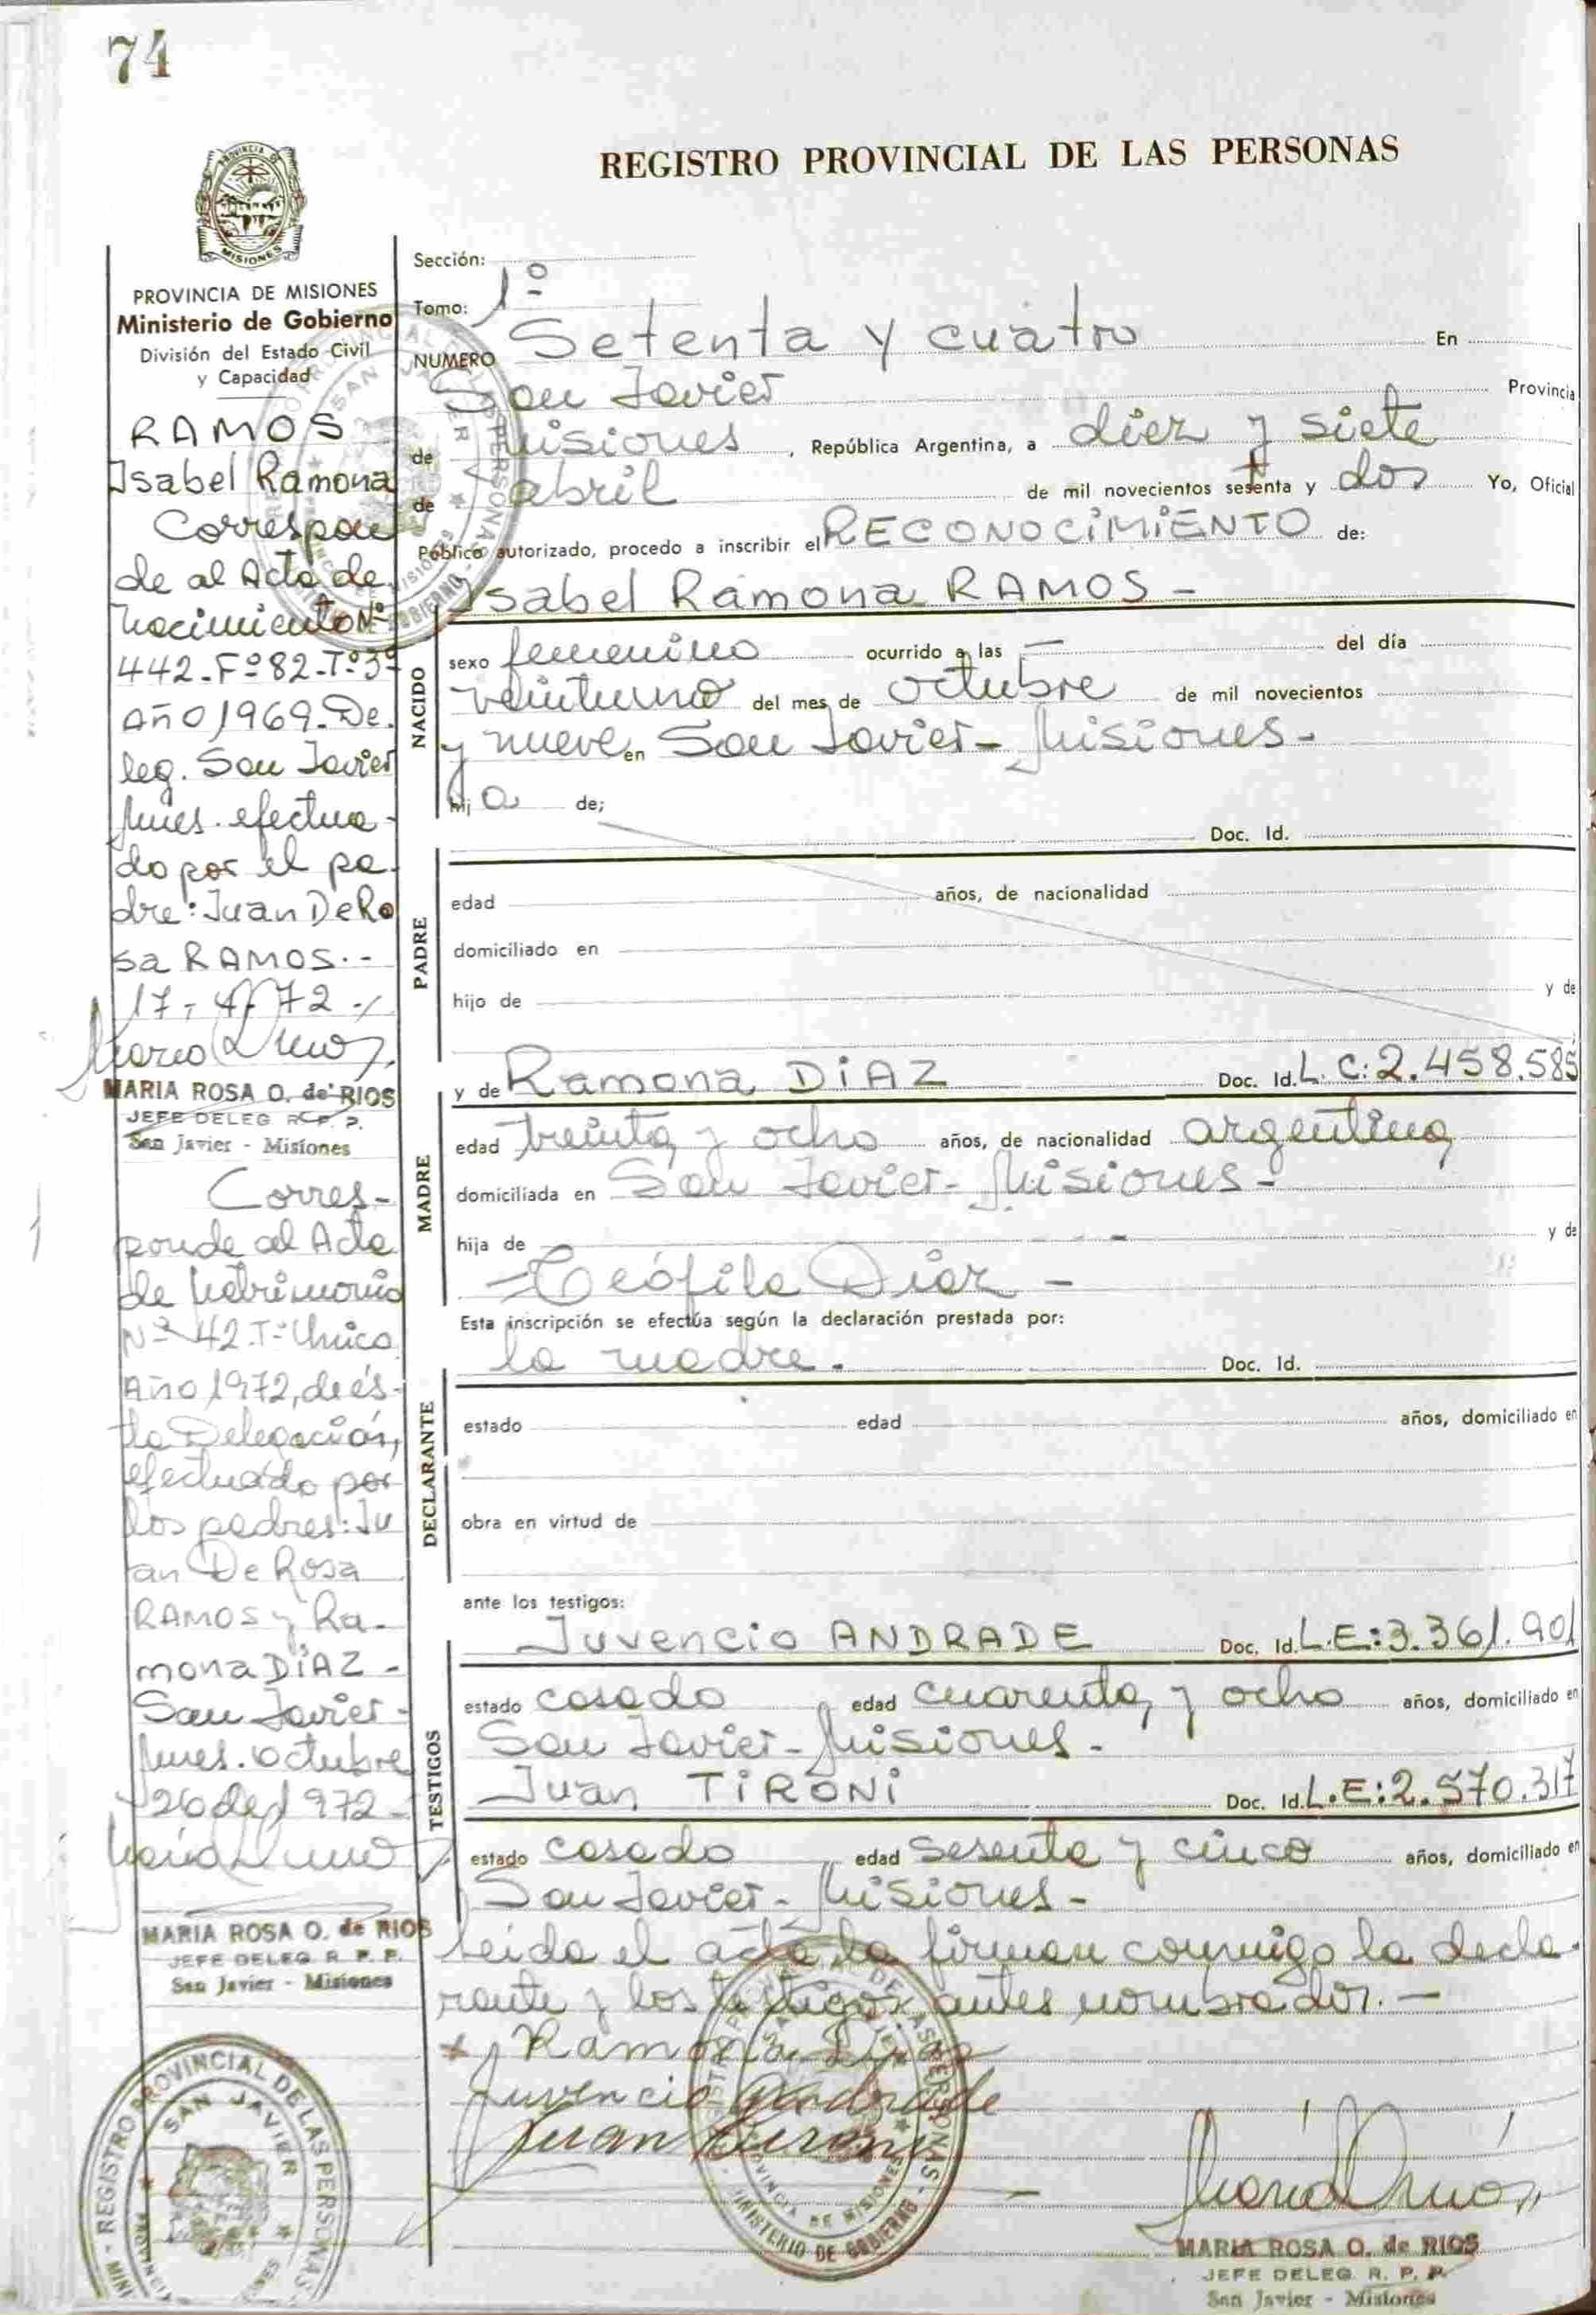 74
REGISTRO PROVINCIAL DE LAS PERSONAS
PROVINCIA DE MISIONES
Ministerio de Gobierno
División del Estado Civil
y Capacidad
RAMOS
Isabel Ramona
Correspon
de al Acta de
Nacimiento Nº
442-Fº82-Tº3º
Año 1969-De
leg. San Javier
Mnes. efectua-
do por el pa-
dre: Juan De Ro
sa RAMOS.-
17-4-72-
MARIA ROSA O. de RIOS
JEFE DELEG R. P. P.
San Javier - Misiones
Corres-
ponde al Acta
de Matrimonio
Nº 42-Tº Unico
Año 1972, de és-
ta Delegación,
efectuado por
los padres: Ju
an De Rosa
RAMOS y Ra-
mona DÍAZ -
San Javier-
Mnes. octubre
26 de 1972-
MARIA ROSA O. de RIOS
JEFE DELEG R. P. P.
San Javier - Misiones
Sección:
Tomo: 1º
NUMERO Setenta y cuatro En
San Javier Provincia
de Misiones, República Argentina, a diez y siete
de abril de mil novecientos setenta y dos Yo, Oficial
Público autorizado, procedo a inscribir el RECONOCIMIENTO de:
Isabel Ramona RAMOS -
NACIDO
sexo femenino ocurrido a las — del día
veintiuno del mes de octubre de mil novecientos
y nueve en San Javier - Misiones -
hija de;
Doc. Id.
PADRE
edad años, de nacionalidad
domiciliado en
hijo de y de
y de Ramona DÍAZ Doc. Id. L.C: 2.458.585
MADRE
edad treinta y ocho años, de nacionalidad argentina
domiciliada en San Javier - Misiones -
hija de y de
Teófila Díaz -
Esta inscripción se efectúa según la declaración prestada por:
la madre. Doc. Id.
DECLARANTE
estado edad años, domiciliado en
obra en virtud de
ante los testigos:
TESTIGOS
Juvencio ANDRADE Doc. Id. L.E: 3.361.901
estado casado edad cuarenta y ocho años, domiciliado en
San Javier - Misiones -
Juan TIRONI Doc. Id. L.E: 2.570.317
estado casado edad sesenta y cinco años, domiciliado en
San Javier - Misiones -
Leida el acta la firman conmigo la decla-
rante y los testigos antes nombrados. —
Ramona Díaz
Juvencio Andrade
Juan Tironi
MARIA ROSA O. de RIOS
JEFE DELEG. R. P. P.
San Javier - Misiones
REGISTRO PROVINCIAL DE LAS PERSONAS
SAN JAVIER
PROVINCIA DE MISIONES
MINISTERIO DE GOBIERNO